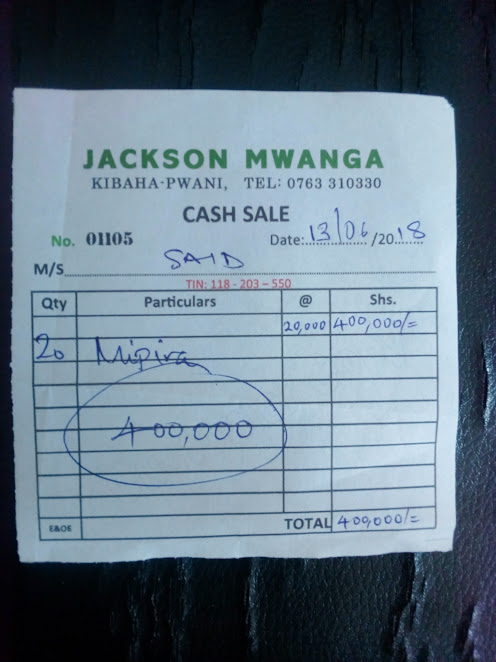 JACKSON MWANGA
KIBAHA-PWANI, TEL: 0763 310330
CASH SALE
No. 01105 Date: 13/06/2018
M/S SAID
TIN: 118 - 203 - 550
Qty Particulars @ Shs.
20,000 400,000/=
20 Mipira
400,000
E&OE TOTAL 400,000/=